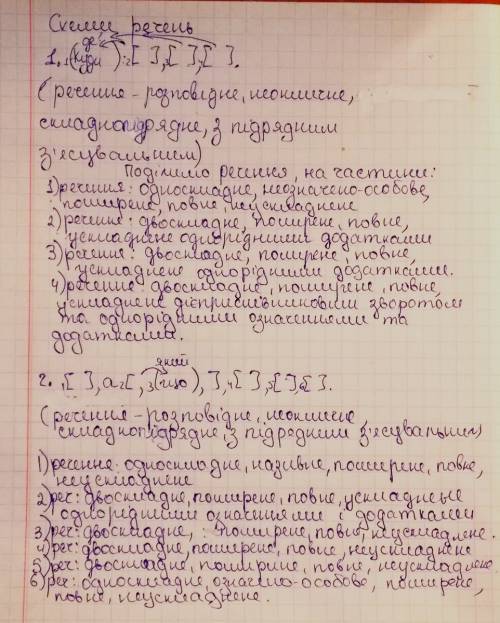 Схеми речень
де
1. 1(куди ):2[ ],3[ ],4[ ].
(речення - розповідне, неокличне,
складнопідрядне, з підрядним
з'ясувальним)
Поділимо речення, на частини:
1) речення: односкладне, неозначено-особове,
поширене, повне, неускладнене
2) речення: двоскладне, поширене, повне,
ускладнене однорідними додатками
3) речення: двоскладне, поширене, повне,
ускладнене однорідними додатками.
4) речення двоскладне, поширене, повне,
ускладнене дієприслівниковим зворотом
та однорідними означеннями та
додатками.
який
2. 1[ ], а2[ , 3(що ), ],4[ ],5[ ]6[ ].
(речення - розповідне, неокличне,
складнопідрядне, з підредним з'ясувальним)
1) речення: односкладне, називне, поширене, повне,
неускладнене
2) реч: двоскладне, поширене, повне, ускладнене
однорідними означеннями і додатками
3) реч: двоскладне, : поширене, повне, неускладнене.
4) реч: двоскладне, поширене, повне, неускладнене
5) реч: двоскладне, поширине, повне, неускладнено
6) реч: односкладне, означено-особове, поширене,
повне, неускладнене.